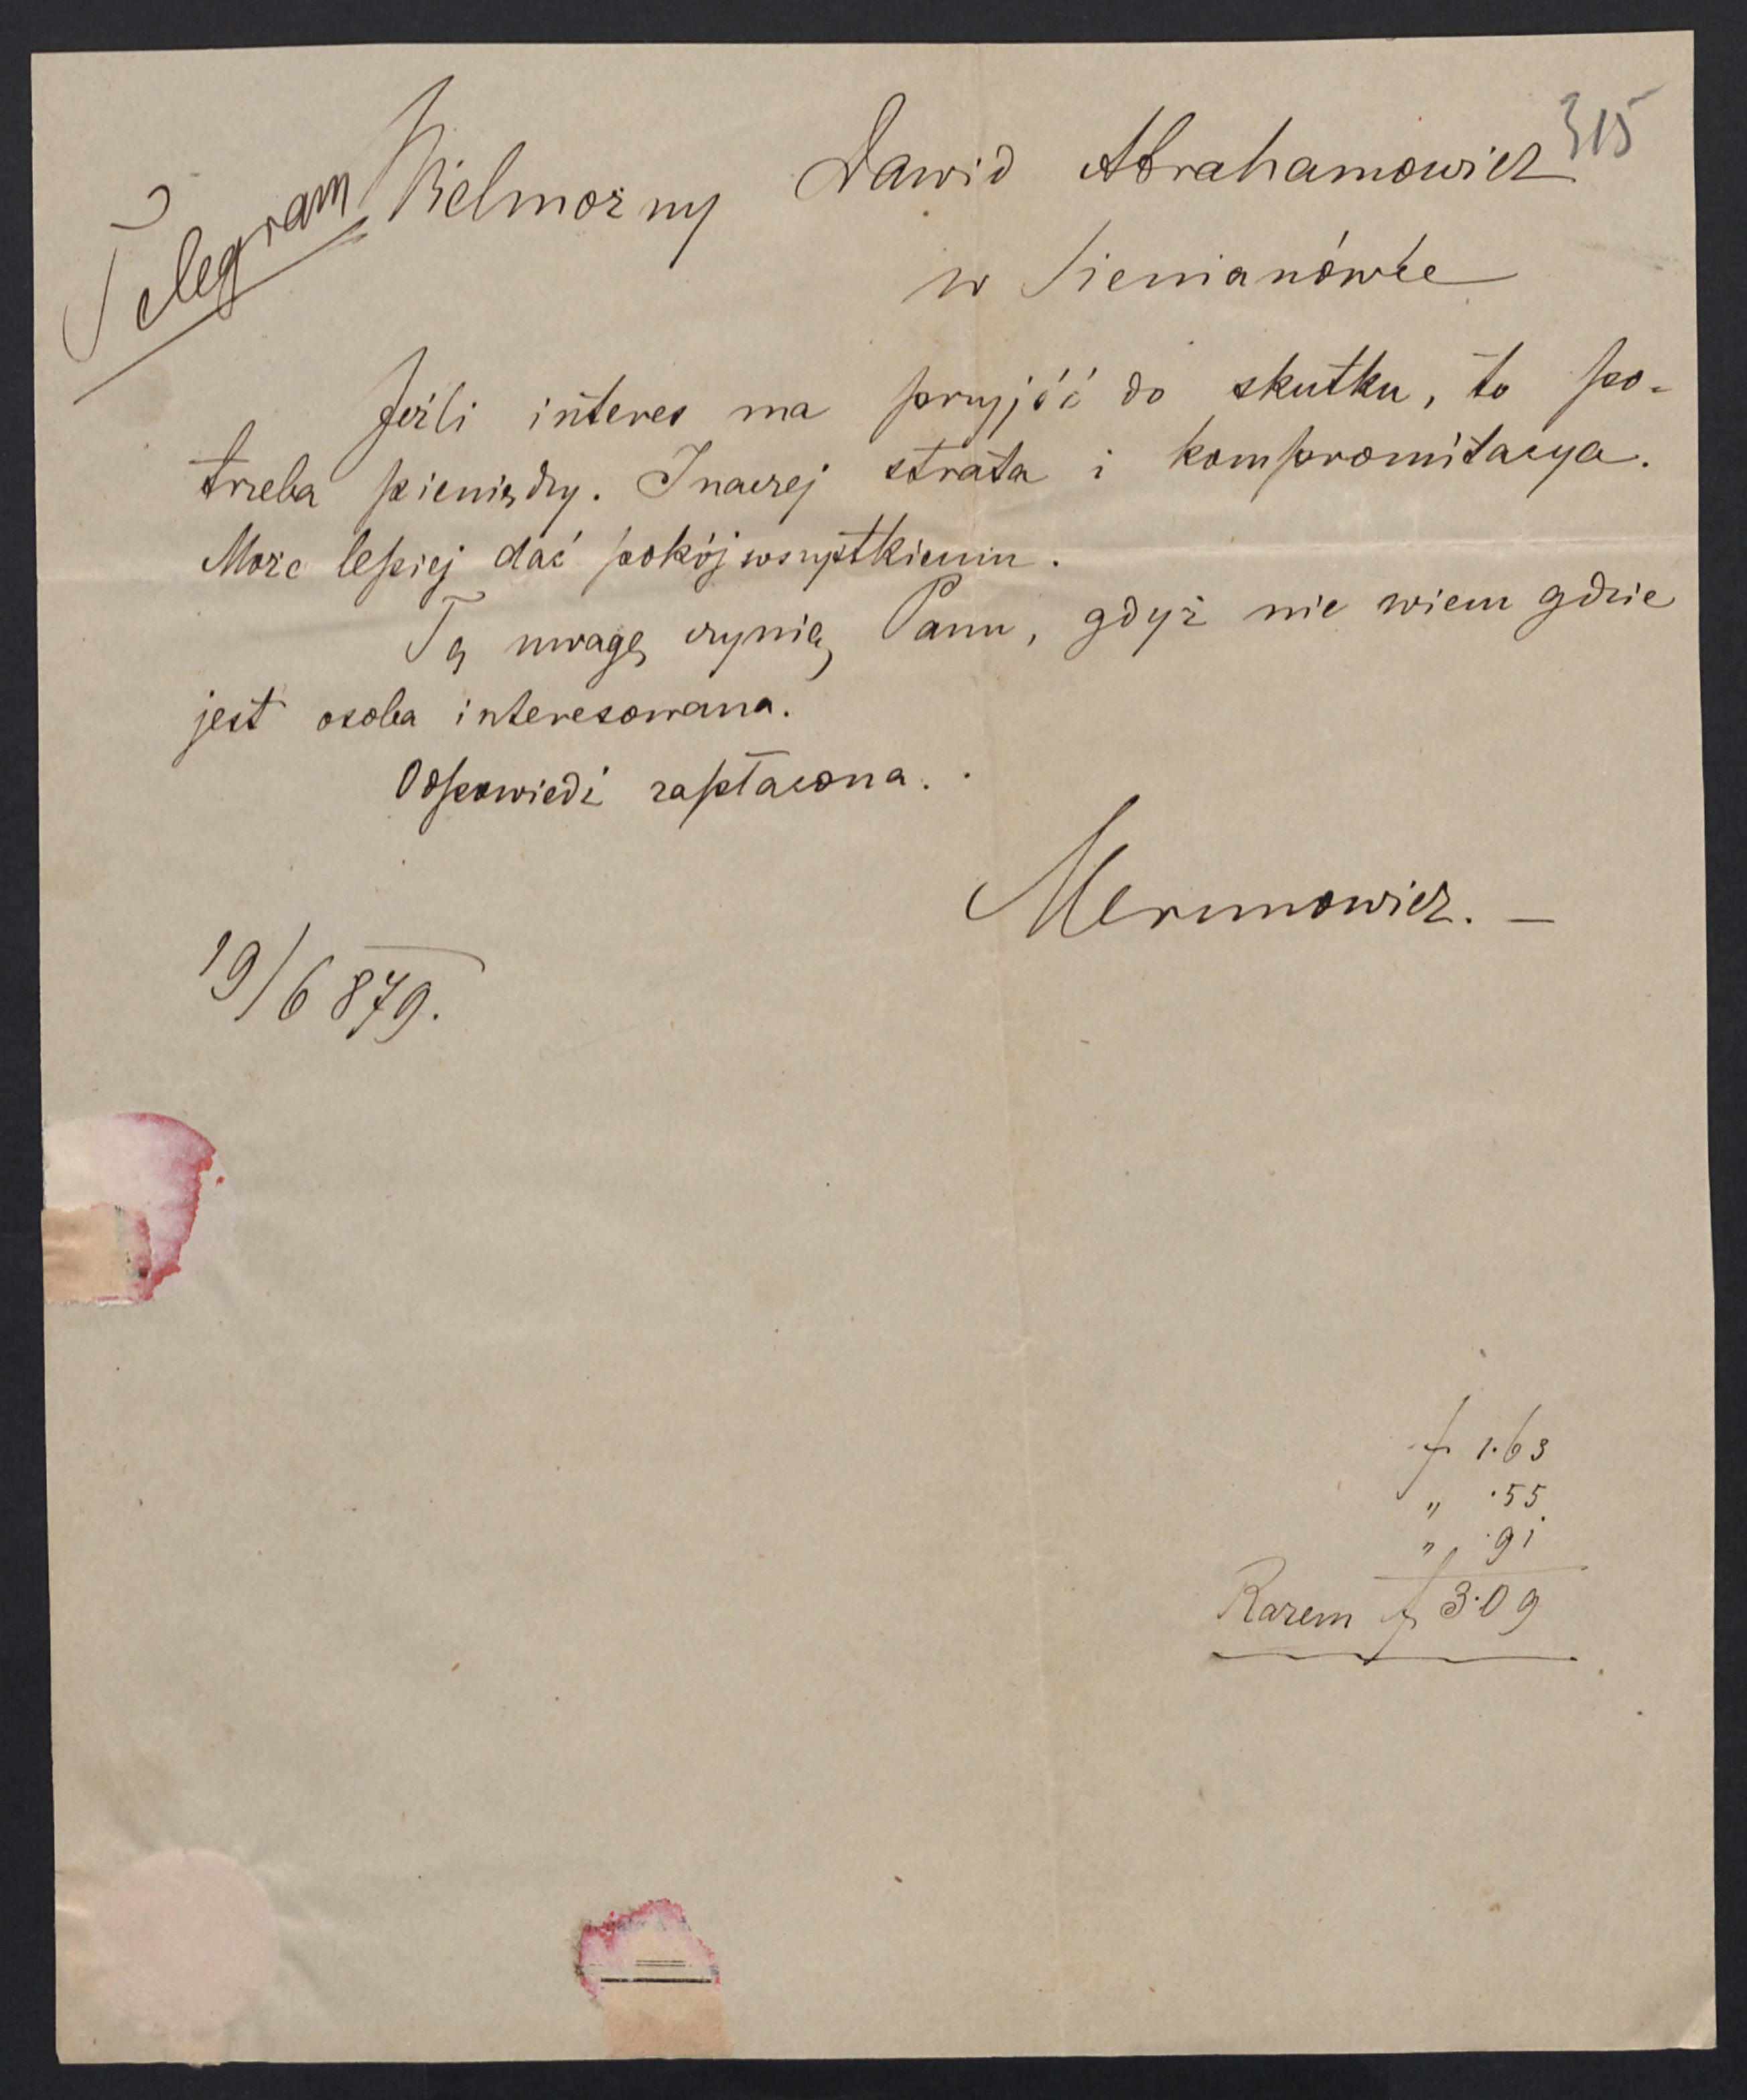 315
Telegram
Wielmożny Dawid Abrahamowicz
w Sienianówce
Jeźli interes ma przyjść do skutku, to po-
trzeba pieniędzy. Inaczej strata i kompromitacya.
Może lepiej dać pokój wszystkiemu.
Tę uwagę czynię Panu, gdyż nie wiem gdzie
jest osoba interesowana.
Odpowiedź zapłacona.
Merunowicz. —
19/6 879.
f 1·63
" ·55
" ·91
Razem f 3·09